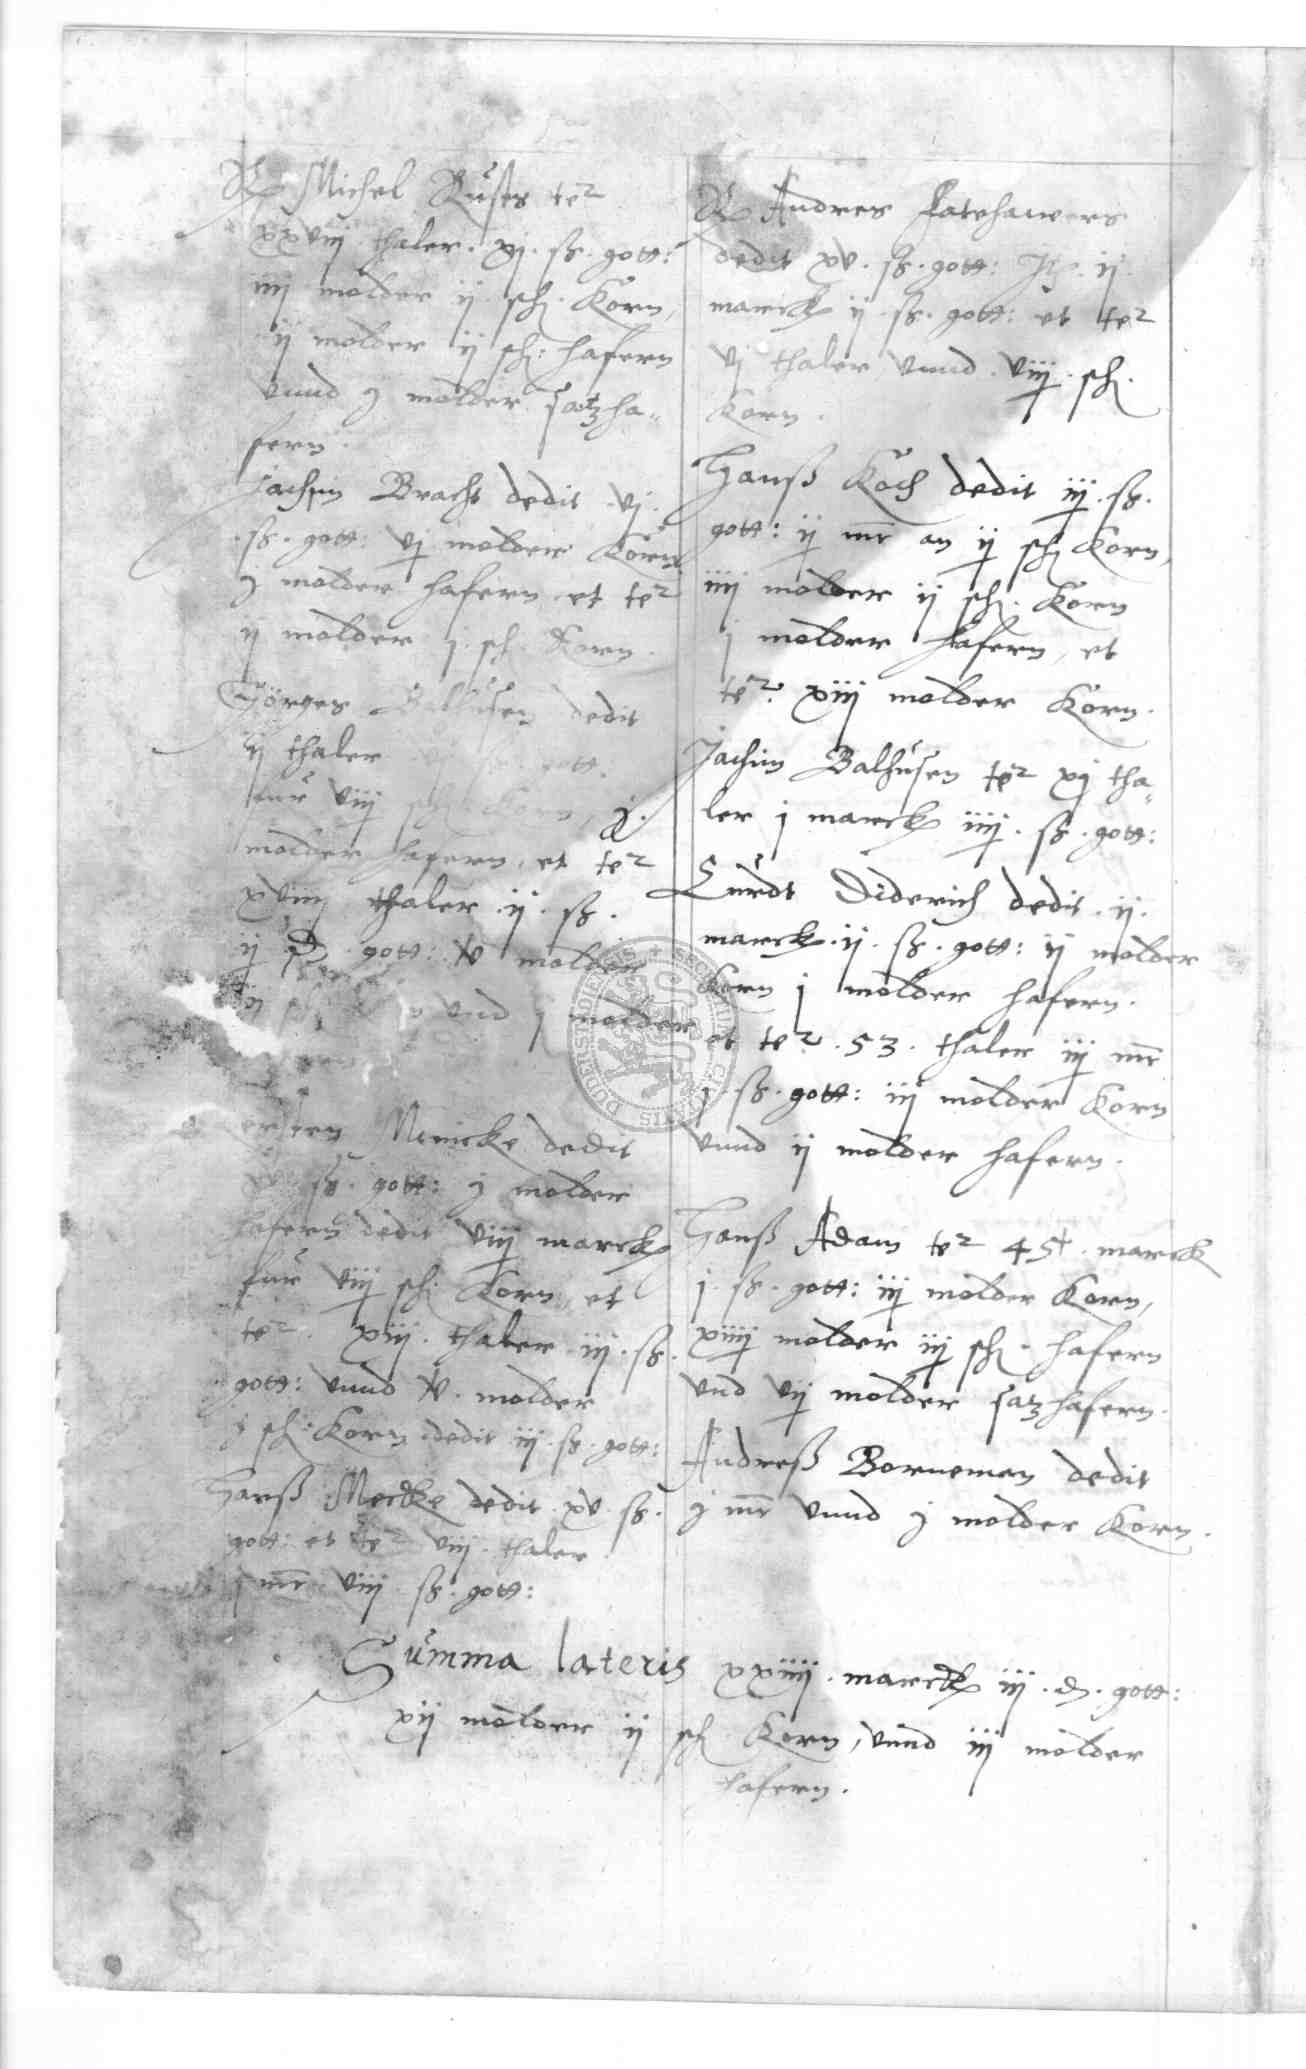 Michel Rusts te2
xxviij thaler. xj. sß. gott:
iiij molder ij sch. Korn,
ij molder ij sch: hafern
vnnd j molder satzha„
fern.
Jachim Bracht dedit vj.
sß. gott: vj molder Korn
j molder hafern et te2
ij molder j. sch. Korn.
Görges Balhusen dedit
ij thaler gott.
fur viij sch Korn, j.
molder hafern, et te2
xviij thaler ij. sß.
ij gott: x molder
ij vnd j molder
Menicke dedit
sß. gott: j molder
hafern dedit viij marck
fur viij sch Korn, et
te2. xiij. thaler iij. sß.
gott: vnnd x. molder
j sch: Korn dedit iij. sß. gott:
Hanß Mecke dedit xv sß.
gott: et te2 viij. thaler
j mr viij sß. gott:
Andres Fatehawers
dedit xv. sß. gott: ij
marck ij. sß. gott: et te2
vj thaler vnnd viij. sch.
Korn.
Hanß Koch dedit iij. sß.
gott: ij mr an ij sch Korn,
iiij molder ij sch. Korn
j molder hafern, et
te2. xiij molder Korn.
Jachim Balhusen te2 xj tha„
ler j marck iiij. sß. gott:
Curdt Diderich dedit ij.
marck. ij. sß. gott: ij molder
Korn j molder hafern.
et te2. 53. thaler iij mr
j. sß. gott: iij molder Korn
vnnd ij molder hafern.
Hanß Adam te2 45 marck
j. sß. gott: iij molder Korn,
xiiij molder iij sch. hafern
vnd vij molder satzhafern.
Andreß Borneman dedit
j mr vnnd j molder Korn.
Summa lateris xxiiij. marck iij. d. gott:
xij molder ij sch Korn, vnnd iij molder
hafern.
SECRETUM CIVITATIS DUDERSTADENSIS